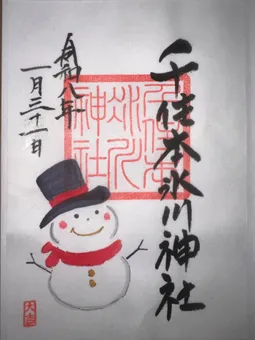 千住本氷川神社
令和八年
一月三十一日
千住本
氷川
神社